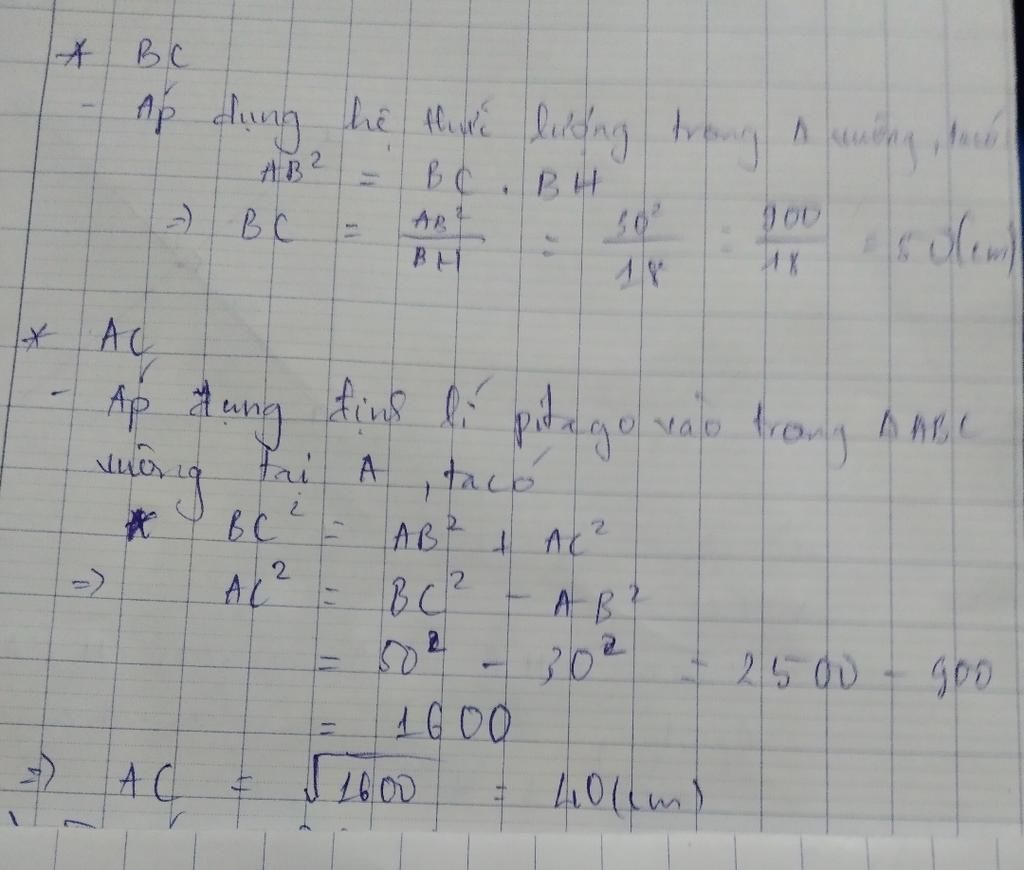 * BC
- Áp dụng hệ thức lượng trong Δ vuông, ta có
AB² = BC . BH
=> BC = AB²/BH = 30²/18 = 900/18 = 50(cm)
* AC
- Áp dụng định lí pitago vào trong Δ ABC
vuông tại A, ta có
* BC² = AB² + AC²
=> AC² = BC² - AB²
= 50² - 30² = 2500 - 900
= 1600
=> AC = √1600 = 40(cm)